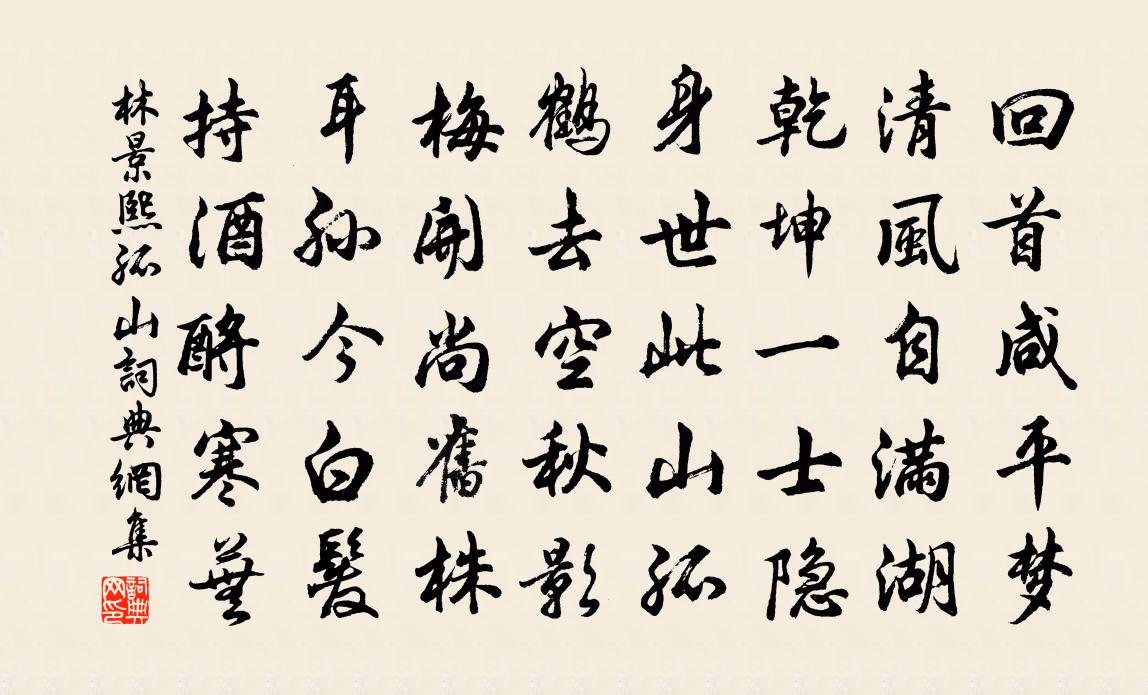 回首咸平梦
清風自满湖
乾坤一士隐
身世此山孤
鶴去空秋影
梅開尚舊株
耳孙今白髮
持酒酹寒蕪
林景熙孤山詞典網集
詞典网印